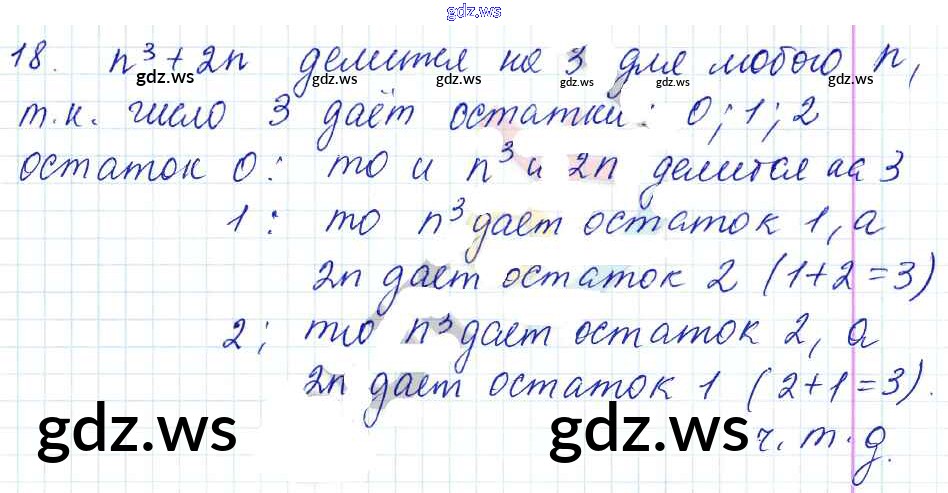 gdz.ws
18. n³+2n делится на 3 для любого n,
gdz.ws gdz.ws gdz.ws gdz.ws
т.к. число 3 даёт остатки: 0; 1; 2
остаток 0: то и n³ и 2n делится на 3
1: то n³ дает остаток 1, а
2n дает остаток 2 (1+2=3)
2; то n³ дает остаток 2, а
2n дает остаток 1 (2+1=3).
gdz.ws gdz.ws
ч.т.д.